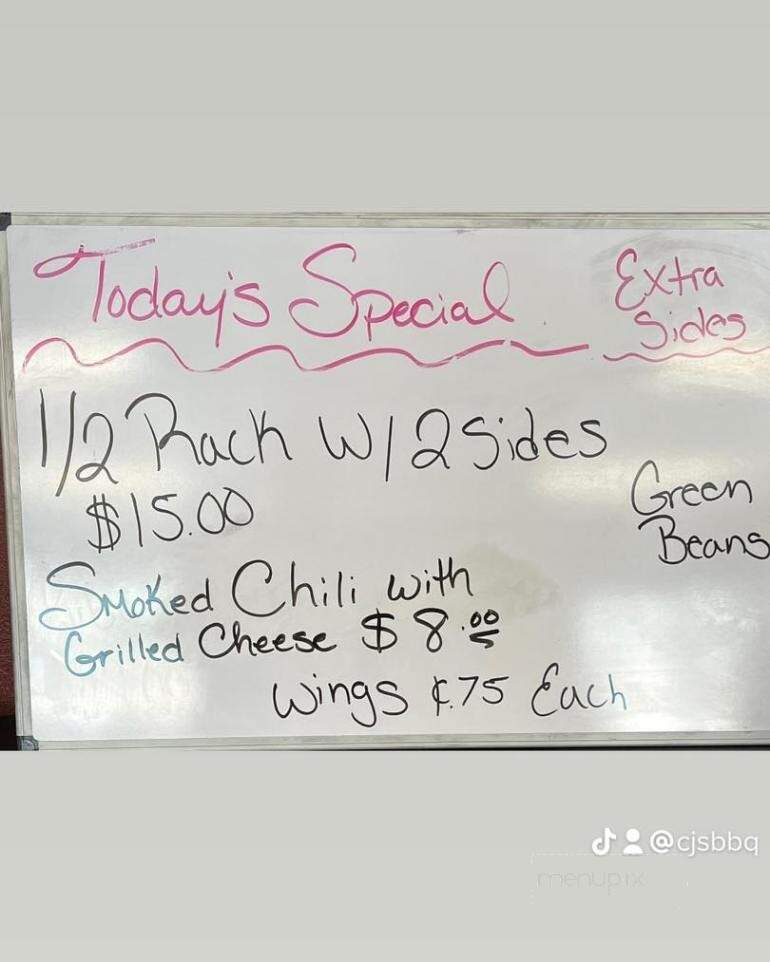 Today's Special
Extra
Sides
1/2 Rack W/2 Sides
$15.00
Green
Beans
Smoked Chili with
Grilled Cheese $8.00
Wings ¢.75 Each
@cjsbbq
menupix